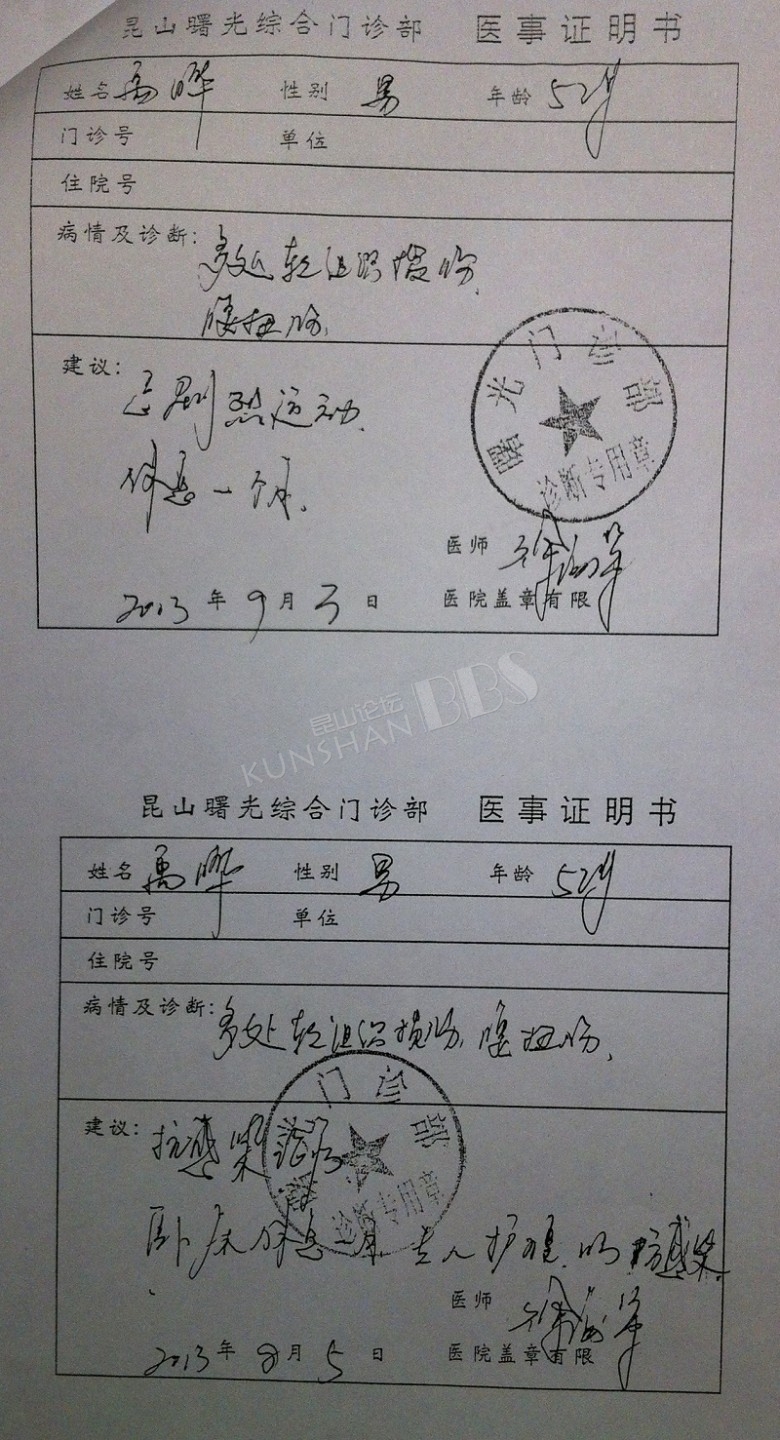 昆山曙光综合门诊部 医事证明书
姓名 禹晔 性别 男 年龄 52岁
门诊号 单位
住院号
病情及诊断：
多处软组织损伤，
腰扭伤，
建议：
忌剧烈运动，
休息一个月，
曙光门诊部
诊断专用章
医师
2013年9月3日 医院盖章有限
昆山论坛
KUNSHAN BBS
昆山曙光综合门诊部 医事证明书
姓名 禹晔 性别 男 年龄 52岁
门诊号 单位
住院号
病情及诊断：多处软组织损伤，腰扭伤，
门诊部
诊断专用章
建议：抗感染治疗
卧床休息一月 专人护理 抗感染
医师
2013年8月5日 医院盖章有限